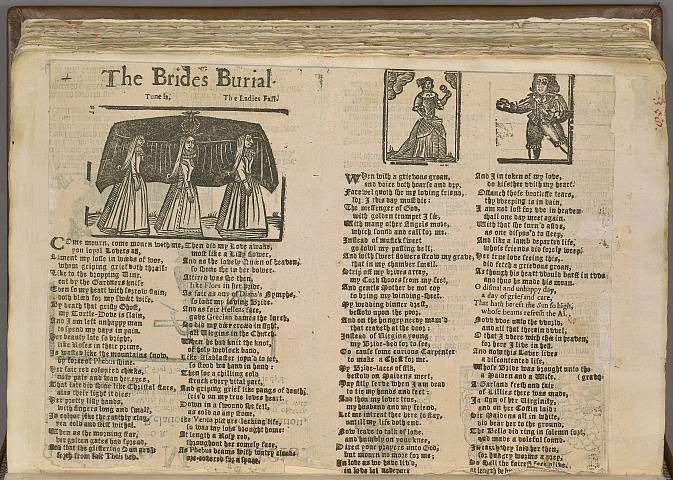 The Brides Burial.
Tune is, The Ladies Fall.
COme mourn, come mourn with me,
you loyal Lovers all,
Lament my loss in weeds of woe,
whom griping grief doth thrall:
Like to the dropping Vine,
cut by the Gardners knife
Even so my heart with sorrow slain,
doth bleed for my sweet wife.
By death that grisly Ghost,
my Turtle-Dove is slain,
And I am left unhappy man
to spend my days in pain.
Her beauty late so bright,
like Roses in their prime,
Is wasted like the mountains snow,
by force of Phebus shine.
Her fair red coloured cheeks,
now pale and wan her eyes,
That late did shine like Christal stars,
alas their light it dies:
Her pretty lilly hands,
with fingers long and small,
In colour like the earthly clay,
yea cold and stiff withal.
When as the morning star,
her golden gates had spread,
And that the glittering Sun arose
forth from fair Thetis bed.
Then did my Love awake,
most like a Lilly flower,
And as the lovely Queen of heaven,
so shone she in her bower.
Attired was she then,
like Flora in her pride,
As fair as any of Diana's Nymphs,
so look'd my loving Bride.
And as fair Hellens face,
gave Grecian dames the lurch,
So did my dear exceed in sight,
all Virgins in the Church.
When we had knit the knot,
of holy wedlock band,
Like Alablaster joyn'd to jet,
so stood we hand in hand:
Then lo a chilling cold
struck every vital part,
And griping grief like pangs of death,
seiz'd on my true loves heart.
Down in a swound she fell,
as cold as any stone,
Like Venus picture lacking life,
so was my love brought home:
At length a Rosy red,
throughout her comely face,
As Phebus beams with watry clouds
were covered for a space.
WHen with a grievous groan,
and voice both hoarse and dry,
Farewel quoth she my loving friend,
for I this day must die:
The messenger of God,
with golden trumpet I see,
With many other Angels more,
which sound and call for me.
Instead of musick sweet
go towl my passing bell,
And with sweet flowers strew my grave,
that in my chamber smell.
Strip off my brides array,
my Cork shooes from my feet,
And gentle Mother be not coy
to bring my winding-sheet.
My wedding dinner drest,
bestow upon the poor,
And on the hungry needy maim'd
that craveth at the door:
Instead of Virgins young
my Bride-bed for to see,
Go cause some curious Carpenter
to make a Chest for me.
My Bride-laces of silk,
bestow on Maidens meet,
May fitly serve when I am dead
to tie my hands and feet:
And thou my lover true,
my husband and my friend,
Let me intreat thee here to stay,
until my life doth end.
Now leave to talk of love,
and humbly on your knee,
Direct your prayers unto God,
but mourn no more for me:
In love as we have liv'd,
in love let us depart
And I in token of my love,
do kiss thee with my heart.
O stanch those bootless tears,
thy weeping is in vain,
I am not lost for we in heaven
shall one day meet again.
With that she turn'd aside,
as one dispos'd to sleep,
And like a lamb departed life,
whose friends did sorely weep:
Her true love seeing this,
did fetch a grievous groan,
As though his heart would burst in twain
and thus he made his moan.
O dismal and unhappy day,
a day of grief and care,
That hath bereft the Sun so high,
whose beams refresh the Air.
Now wo unto the world,
and all that therein dwel,
O that I were with thee in heaven,
for here I live in hell.
And now this Lover lives
a discontented life,
Whose Bride was brought unto the
(grave
a Maiden and a Wife.
A Garland fresh and fair
of Lillies there was made,
In sign of her Virginity,
and on her Coffin laid:
Six Maidens all in white,
did bear her to the ground,
The Bells did ring in solemn sort,
and made a doleful sound.
In earth they laid her then,
for hungry worms a prey,
So shall the fairest face alive,
at length be